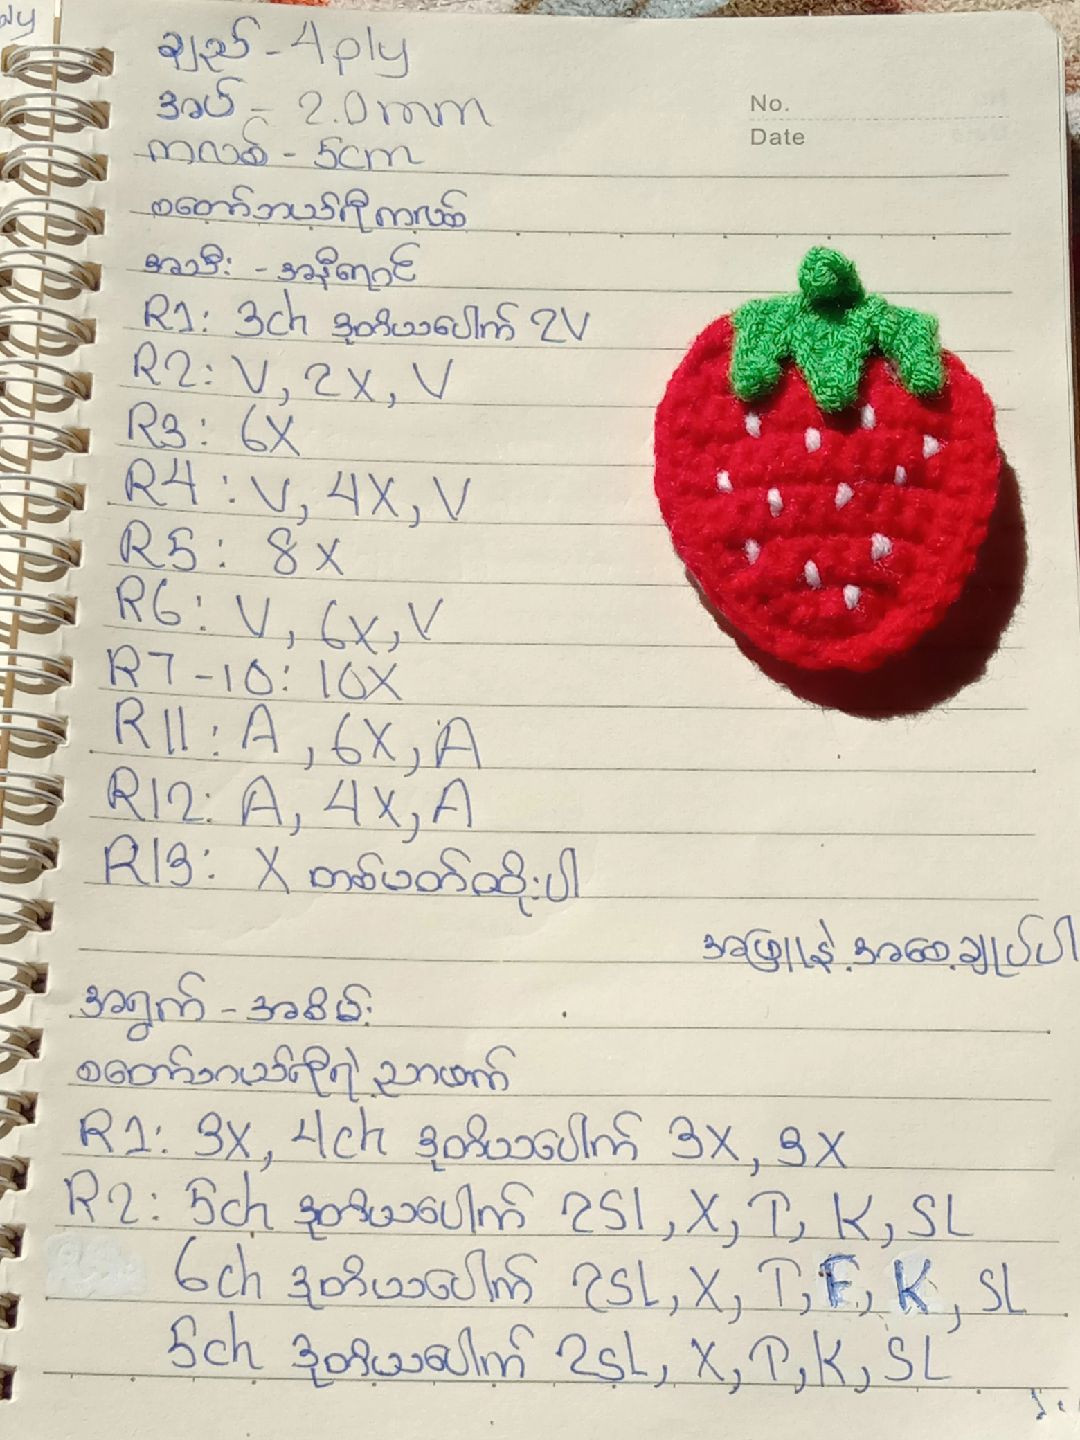 ချည် - 4ply
အပ် - 2.0mm
No.
Date
ကလစ် - 5cm
စတော်ဘယ်ရီကလစ်
အသီး - အနီရောင်
R1: 3ch ဒုတိယပေါက် 2V
R2: V, 2X, V
R3: 6X
R4: V, 4X, V
R5: 8X
R6: V, 6X, V
R7-10: 10X
R11: A, 6X, A
R12: A, 4X, A
R13: X တစ်ပတ်ထိုးပါ
အဖြူနဲ့ အစေ့ချုပ်ပါ
အရွက် - အစိမ်း
စတော်ဘယ်ရီရဲ့ ညာဖက်
R1: 3X, 4ch ဒုတိယပေါက် 3X, 3X
R2: 5ch ဒုတိယပေါက် 2SL, X, T, K, SL
6ch ဒုတိယပေါက် 2SL, X, T, F, K, SL
5ch ဒုတိယပေါက် 2SL, X, T, K, SL